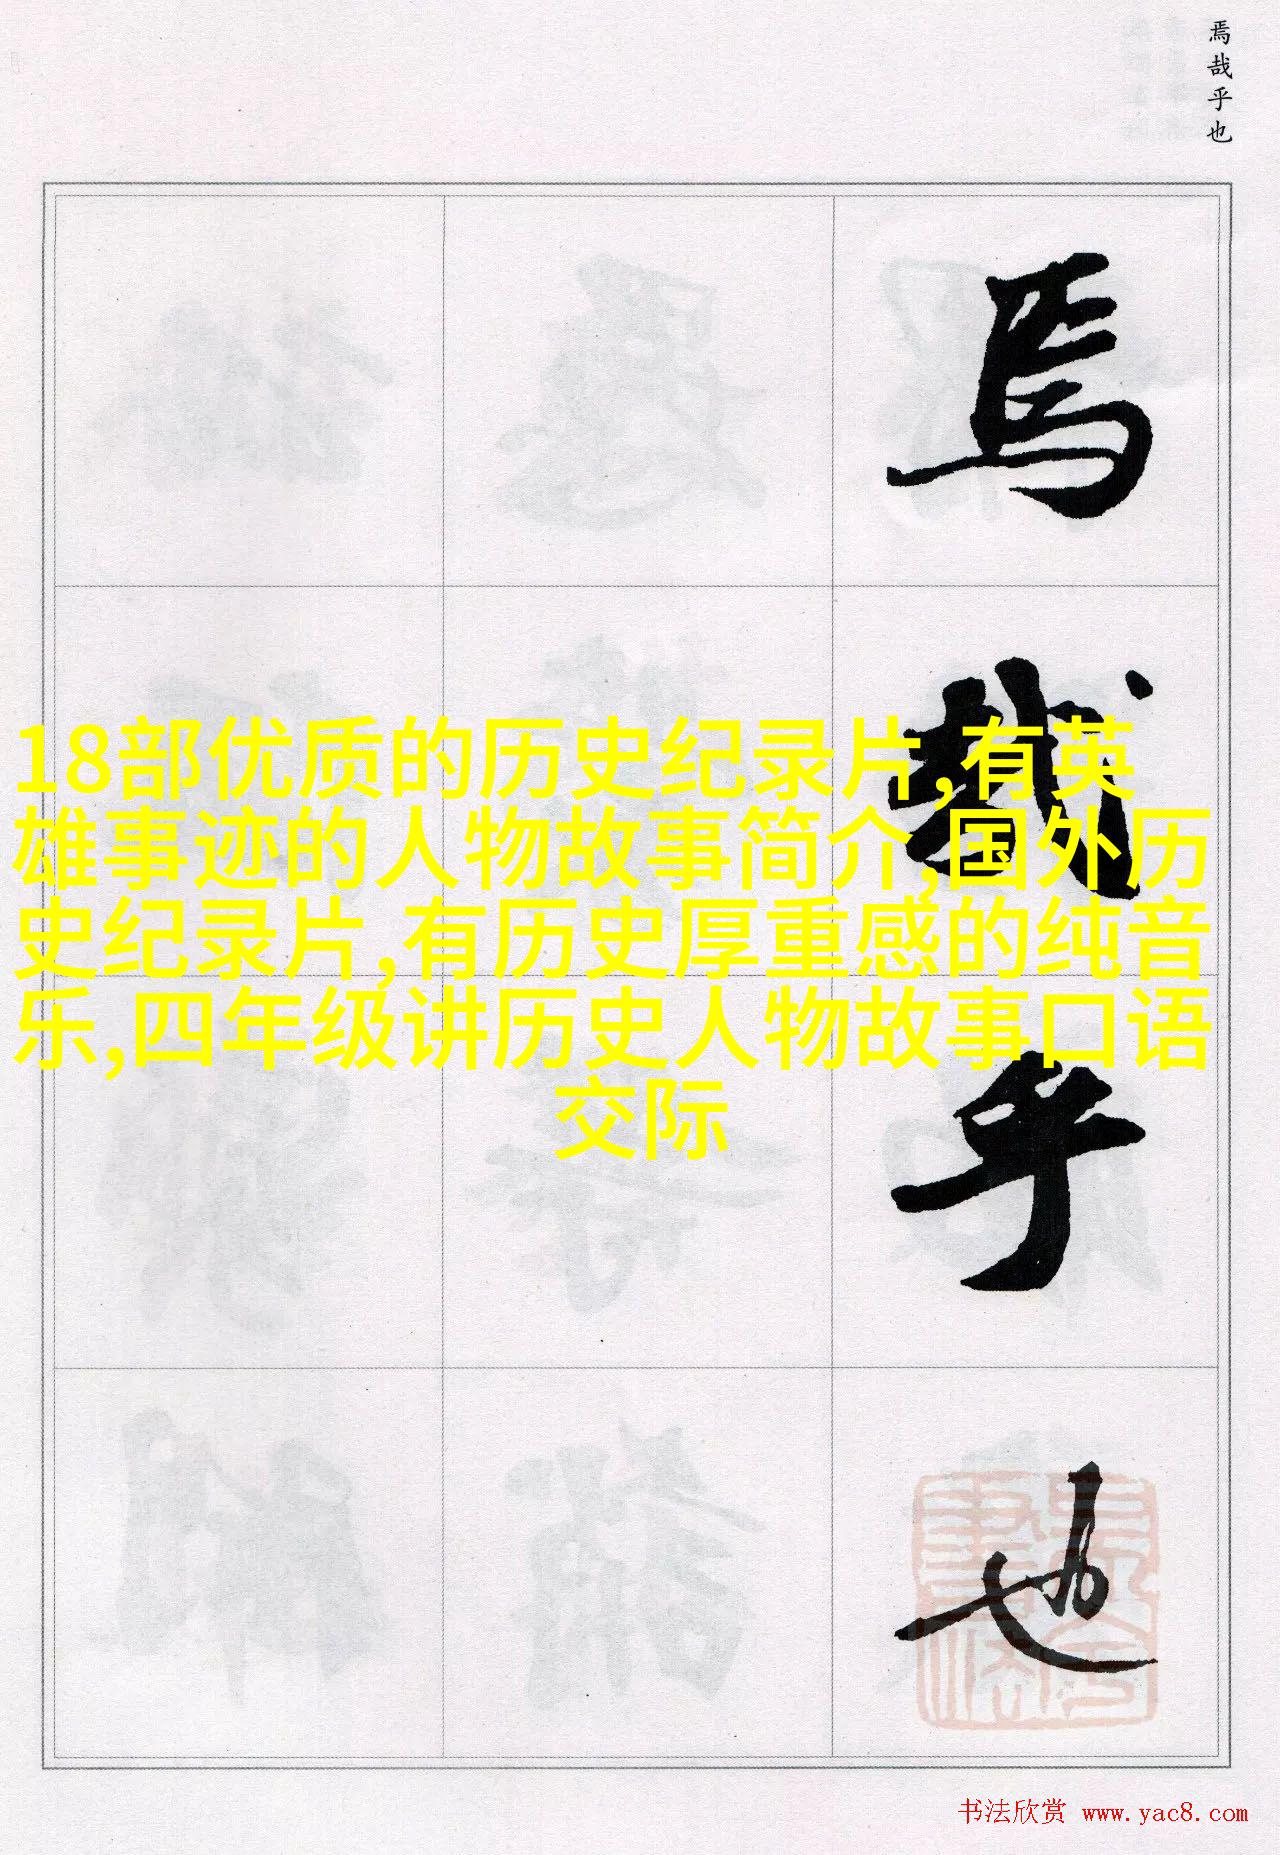 焉哉乎也
焉
哉
乎
也
18部优质的历史纪录片,有英
雄事迹的人物故事简介,国外历
史纪录片,有历史厚重感的纯音
乐,四年级讲历史人物故事口语
交际
书法欣赏 www.yac8.com